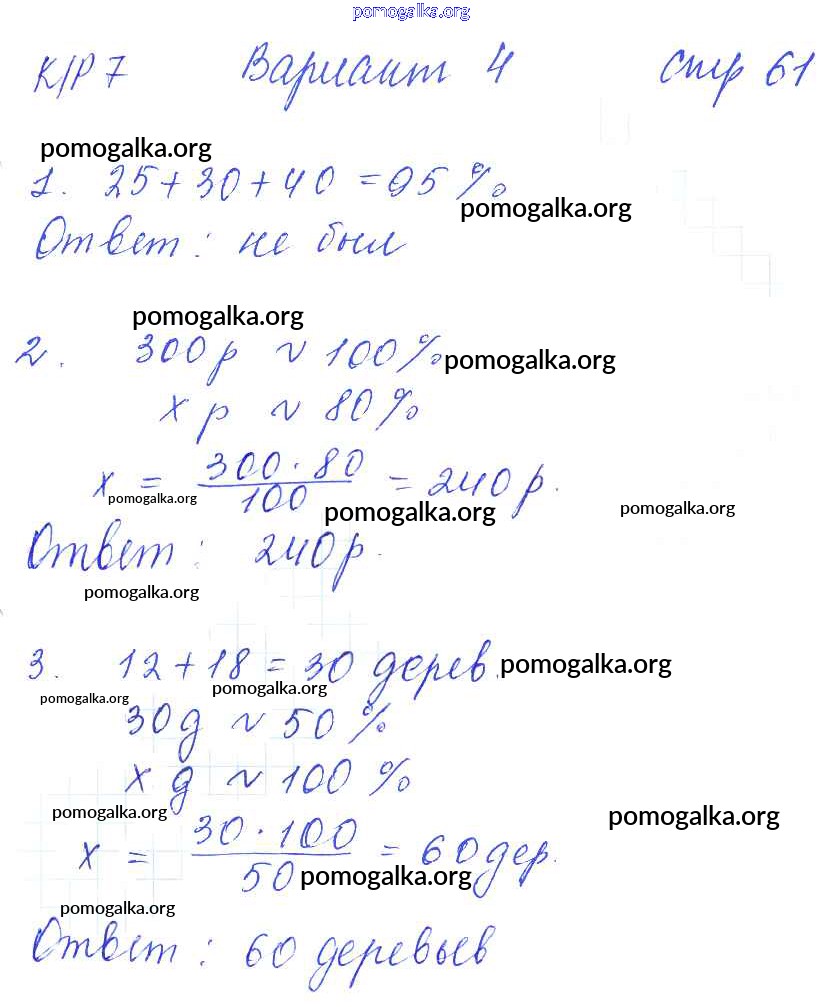 pomogalka.org
К/Р 7 Вариант 4 стр 61
pomogalka.org
1. 25 + 30 + 40 = 95 %
pomogalka.org
Ответ : не был
pomogalka.org
2. 300 р ~ 100 %
pomogalka.org
х р ~ 80 %
х = 300 · 80 / 100 = 240 р.
pomogalka.org
pomogalka.org
pomogalka.org
Ответ : 240 р.
pomogalka.org
3. 12 + 18 = 30 дерев.
pomogalka.org
pomogalka.org
pomogalka.org
30 д ~ 50 %
х д ~ 100 %
pomogalka.org
pomogalka.org
х = 30 · 100 / 50 = 60 дер.
pomogalka.org
pomogalka.org
Ответ : 60 деревьев